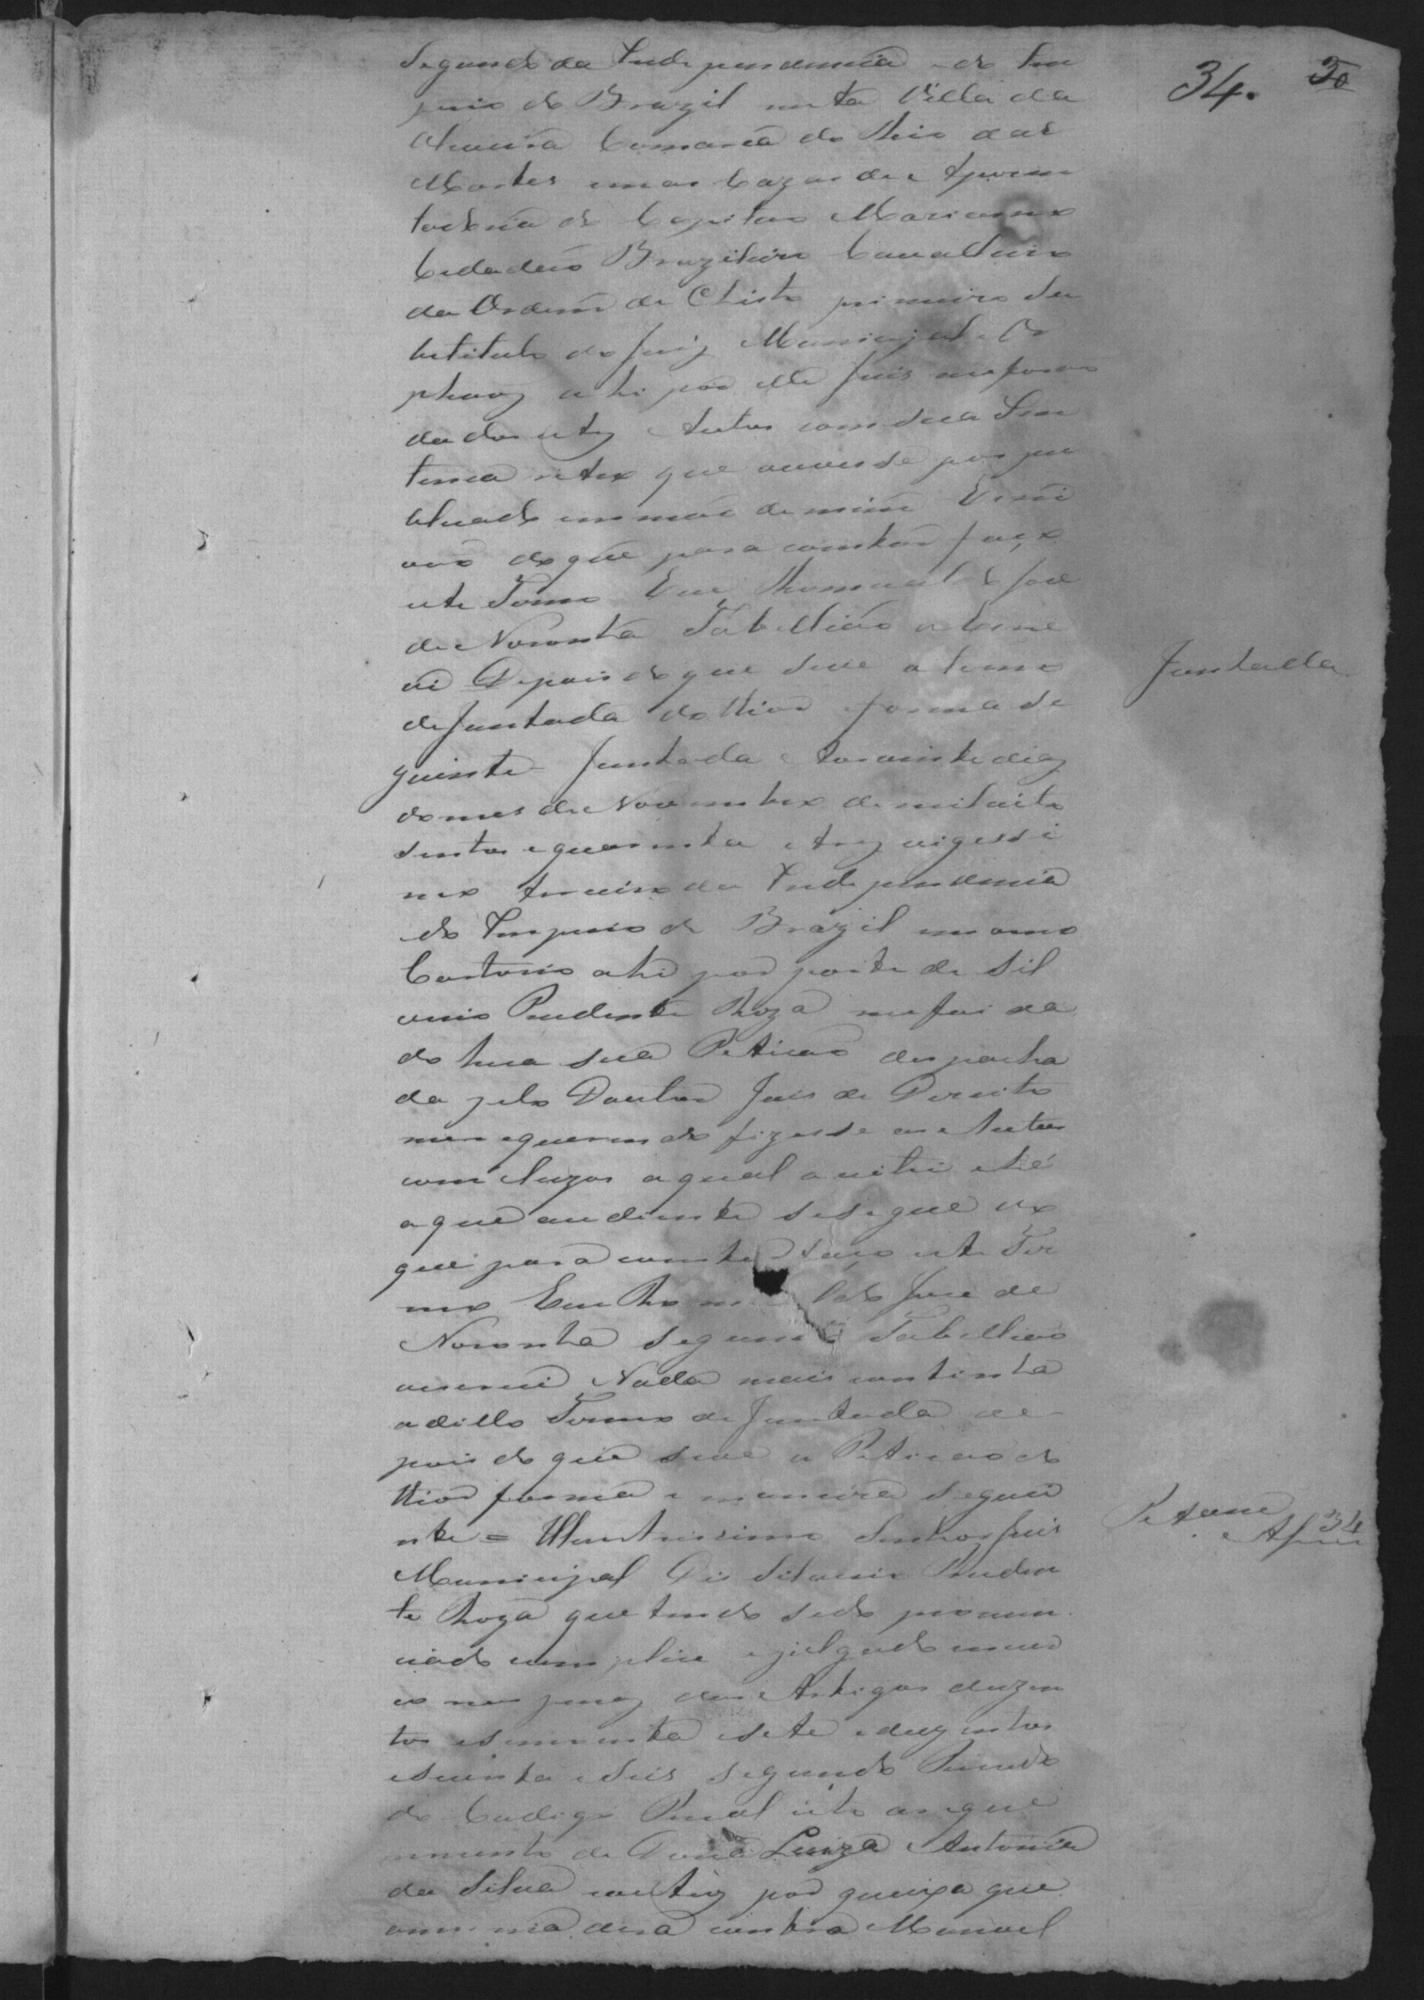 34. 50
Segundo da Independencia e do Im
perio do Brazil nesta Villa da
Comarca do Rio das
Mortes em as Cazas de Aposen
tadoria do Capitão Marianno
Cidadão Brazileiro Cavalleiro
da Ordem de Christo primeiro Su
bstituto do Juiz Municipal e Or
phaos ahi por elle Juis me forão
dados estes Autos com sua Sen
tença retro que ouve se por pu
blicado em mão de mim Escri
vão do que para constar faço
este Termo Eu Romualdo José
de Noronha Tabellião o escre
vi Depois do que se ve o termo
de juntada do theor e forma se
Juntada
guinte Juntada Aos vinte dias
do mes de Novembro de mil oito
sentos e quarenta e tres vigessi
mo terceiro da Independencia
do Imperio do Brazil em o meo
Cartorio ahi por parte de Sil
verio Prudente Roza me foi da
do hua sua Petição despacha
da pelo Doutor Juis de Direito
me requerendo fizesse os Autos
com cluzos a qual aceitei e hé
a que audiante se segue do
que para constar faço este Ter
mo Eu Romualdo Jose de
Noronha segundo Tabellião
o escrevi Nada mais continha
o dito Termo de Juntada de
pois do que se ve a Petição do
theor forma e maneira segui
nte = Illustrissimo Senhor Juis
Municipal Dis Silverio Pruden
te Roza que tendo sido pronun
ciado complice e julgado incur
so nas penas dos Artigos duzen
tos e sincoenta e sete e duzentos
e secenta e seis segunda
do Codigo Penal isto a reque
rimento de Dona Luiza Antonia
da Silva por queixa que
contra Manoel